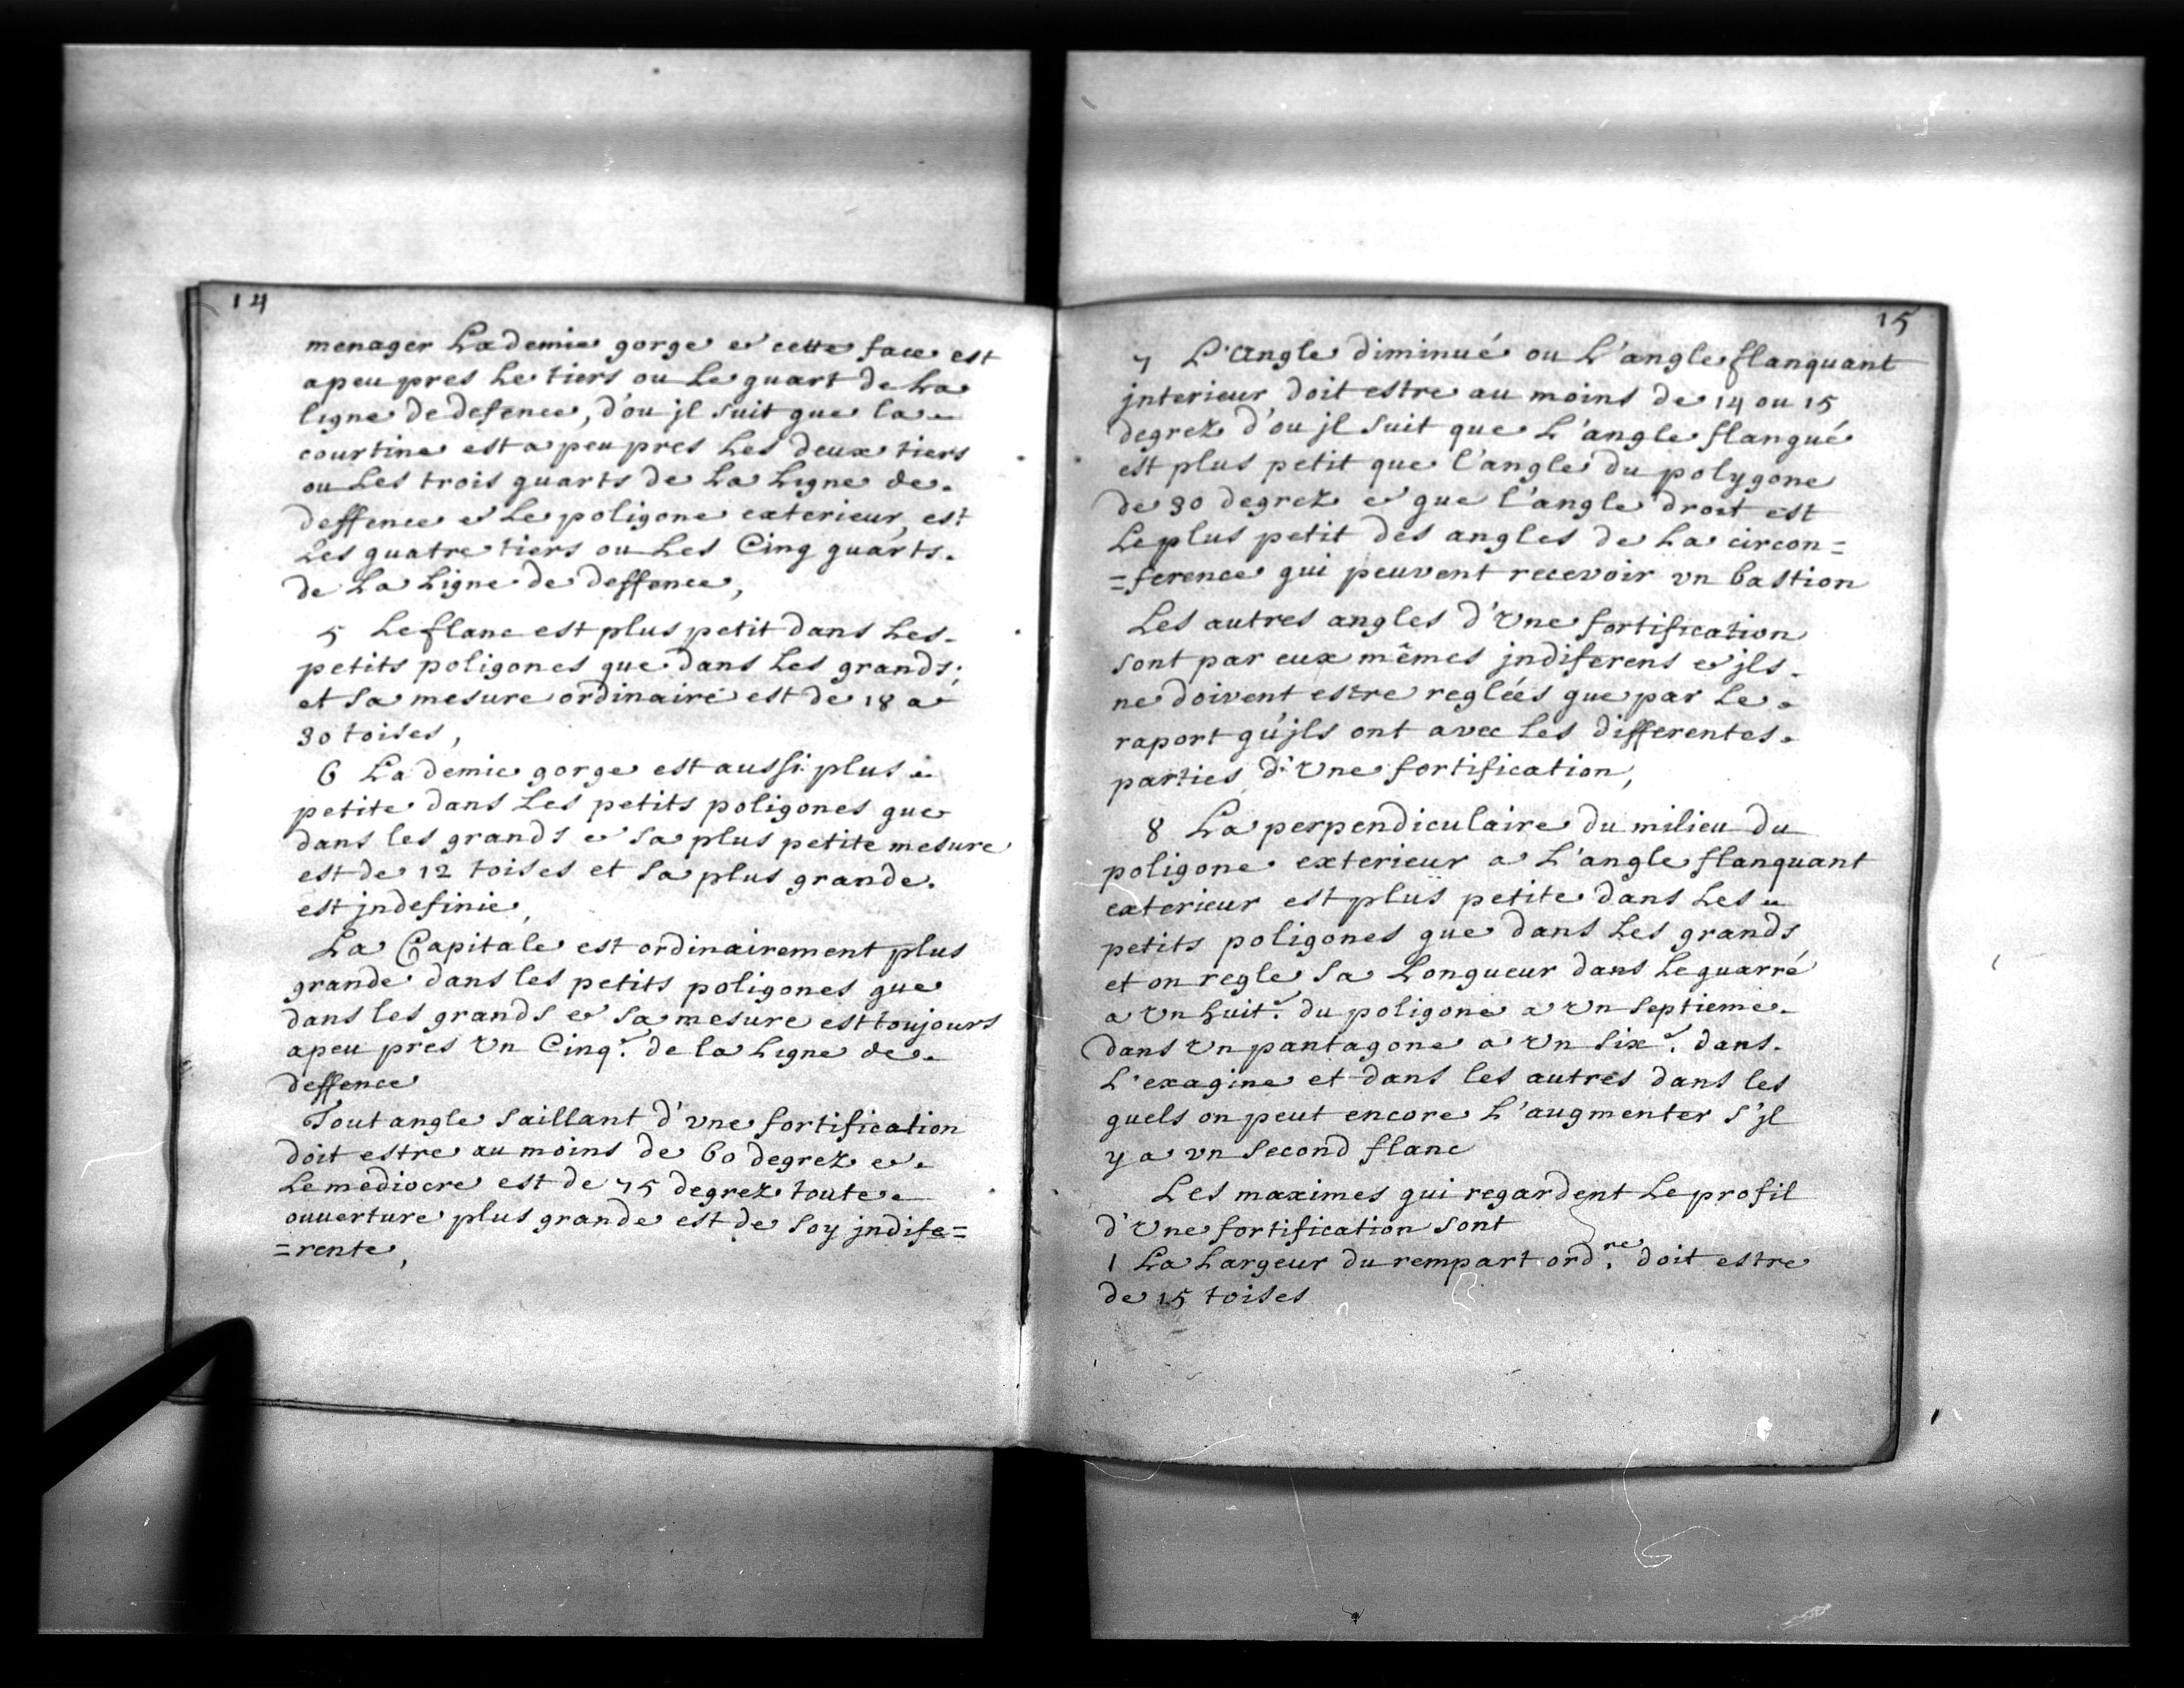 14
menager La demie gorge et cette face est
apeu pres Le tiers ou Le quart de La
ligne de defence, d'ou jl suit que la
courtine est a peu pres Les deux tiers
ou Les trois quarts de La Ligne de
deffence et Le poligone exterieur, est
Les quatre tiers ou Les Cinq quarts.
de La Ligne de deffence,
5 Le flanc est plus petit dans Les
petits poligones que dans Les grands;
et sa mesure ordinaire est de 18 a
30 toises,
6 La demie gorge est aussi plus
petite dans Les petits poligones que
dans les grands et sa plus petite mesure
est de 12 toises et sa plus grande.
est jndefinie,
La Capitale est ordinairement plus
grande dans les petits poligones que
dans les grands et sa mesure est toujours
apeu pres Vn Cinq.e de la Ligne de
deffence
Tout angle saillant d'vne fortification
doit estre au moins de 60 degrez et
Le mediocre est de 75 degrez toute
ouuerture plus grande est de soy jndife=
=rente,
15
7 L'Angle diminué ou L'angle flanquant
jnterieur doit estre au moins de 14 ou 15
degrez d'ou jl suit que L'angle flanqué
est plus petit que l'angle du polygone
de 30 degrez et que l'angle droit est
Le plus petit des angles de La circon=
=ference qui peuvent recevoir vn bastion
Les autres angles d'Vne fortification
sont par eux mêmes jndiferens et jls
ne doivent estre reglées que par Le
raport qu'jls ont avec Les differentes
parties d'Vne fortification,
8 La perpendiculaire du milieu du
poligone exterieur a L'angle flanquant
exterieur est plus petite dans Les
petits poligones que dans Les grands
et on regle sa Longueur dans Le quarré
a Vn huit.e du poligone a Vn septieme
dans Vn pantagone a Vn six.e dans
L'exagine et dans les autres dans les
quels on peut encore L'augmenter s'jl
y a vn second flanc
Les maximes qui regardent Le profil
d'Vne fortification sont
1 La Largeur du rempart ord.re doit estre
de 15 toises